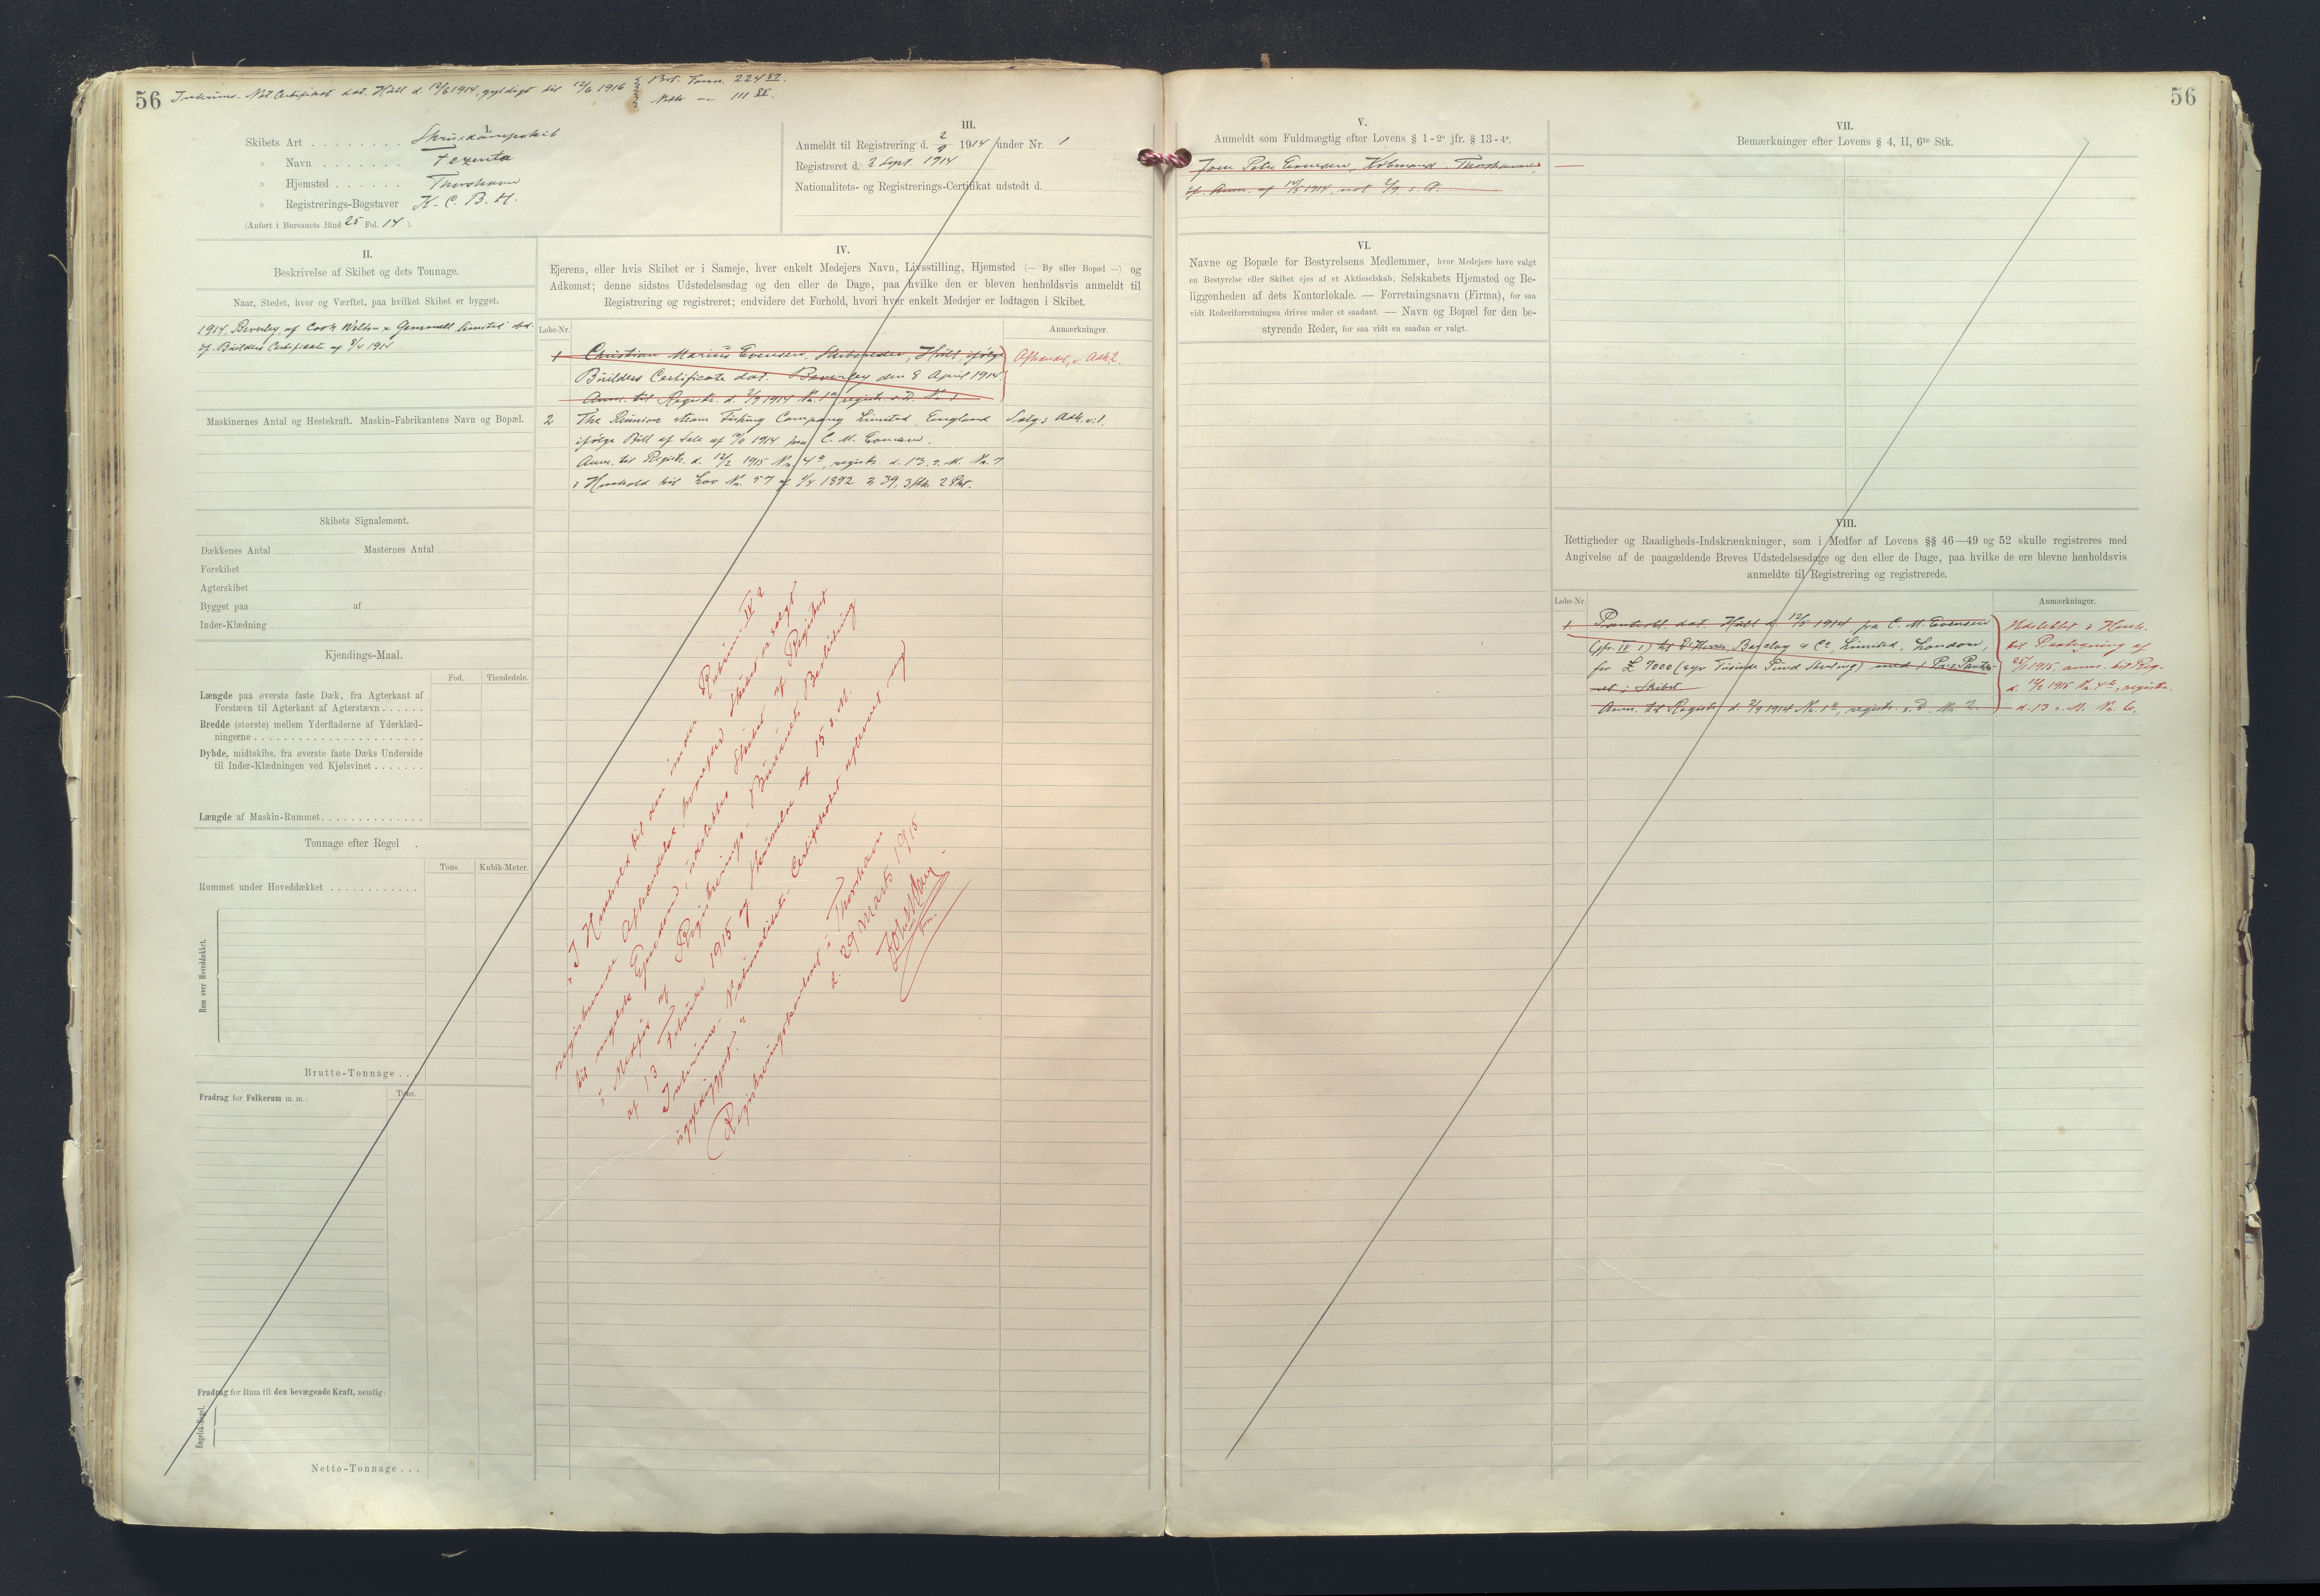 56
Interims-Nat. Certifikat dat. Hull d. 12/6 1914, gyldigt til 12/6 1916
Brt. Tonn. 224 87.
Netto — 111 85.
I.
Skibets Art . . . . . . . . Skruedampskib
» Navn . . . . . . . Tezenta
» Hjemsted . . . . . . Thorshavn
» Registrerings-Bogstaver
(Anført i Bureauets Bind 25 Fol. 14).
III.
Anmeldt til Registrering d. 2/9 1914 under Nr. 1
Registreret d. 2 Sept. 1914
Nationalitets- og Registrerings-Certifikat udstedt d.
II.
Beskrivelse af Skibet og dets Tonnage.
Naar, Stedet, hvor og Værftet, paa hvilket Skibet er bygget.
1914, Beverley, af Cook Welton & Gemmell limited
if. Builders Certificate af 8/4 1914
Maskinernes Antal og Hestekraft. Maskin-Fabrikantens Navn og Bopæl.
Skibets Signalement.
Dækkenes Antal Masternes Antal
Forskibet
Agterskibet
Bygget paa af
Inder-Klædning
Kjendings-Maal.
Fod. Tiendedele.
Længde paa øverste faste Dæk, fra Agterkant af
Forstævn til Agterkant af Agterstævn . . . . . .
Bredde (største) mellem Yderfladerne af Yderklæd-
ningerne . . . . . . . . . . . . . . . . . . . . . . .
Dybde, midtskibs, fra øverste faste Dæks Underside
til Inder-Klædningen ved Kjølsvinet . . . . . . .
Længde af Maskin-Rummet . . . . . . . . . . . . . .
Tonnage efter Regel .
Tons. Kubik-Meter.
Rummet under Hoveddækket . . . . . . . . . . . .
Rum over Hoveddækket.
Brutto-Tonnage . .
Fradrag for Folkerum m. m.: Tons.
Fradrag for Rum til den bevægende Kraft, nemlig:
Engelsk Regel.
Netto-Tonnage . . .
IV.
Ejerens, eller hvis Skibet er i Sameje, hver enkelt Medejers Navn, Livsstilling, Hjemsted (— By eller Bopæl —) og
Adkomst; denne sidstes Udstedelsesdag og den eller de Dage, paa hvilke den er bleven henholdsvis anmeldt til
Registrering og registreret; endvidere det Forhold, hvori hver enkelt Medejer er lodtagen i Skibet.
Løbe-Nr. Anmærkninger.
1 Christian Marius Evensen, Skibsreder, Hull, ifølge Afhændet, v. Adk. 2.
Builders Certificate dat. Beverley den 8 April 1914
Anm. til Registr. d. 2/9 1914 Nr. 1a, registr. s. D. Nr. 1
2 The steam Fishing Company Limited, England Salg; Adk. v. 1.
ifølge Bill of Sale af 1914 fra C. M. Evensen.
Anm. til Registr. d. 12/2 1915 Nr. 4a, registr. d. 13 s. M. Nr. 7
i Henhold til Lov Nr. 57 af 1/4 1892 § 39, 3 Stk. 2 Pkt.
"I Henhold til den under Rubrik IV 2
registrerede Afhændelse, hvorefter Skibet er solgt
til engelsk Ejendom, udslettes Skibet af Registret
i Medfør af Registrerings-Bureauets Beslutning
af 13 Februar 1915 og Skrivelse af 15 s. M.
Interims-Nationalitets-Certifikatet afleveret og
ugyldiggjort."
Registreringskontoret i Thorshavn
d. 29 Marts 1915
56
V.
Anmeldt som Fuldmægtig efter Lovens § 1 - 2° jfr. § 13 - 4°.
Jens Peter Evensen, Købmand, Thorshavn,
if. Anm. af 1914, not. 2/9 s. A.
VI.
Navne og Bopæle for Bestyrelsens Medlemmer, hvor Medejere have valgt
en Bestyrelse eller Skibet ejes af et Aktieselskab; Selskabets Hjemsted og Be-
liggenheden af dets Kontorlokale. — Forretningsnavn (Firma), for saa
vidt Rederiforretningen drives under et saadant. — Navn og Bopæl for den be-
styrende Reder, for saa vidt en saadan er valgt.
VII.
Bemærkninger efter Lovens § 4, II, 6te Stk.
VIII.
Rettigheder og Raadigheds-Indskrænkninger, som i Medfør af Lovens §§ 46—49 og 52 skulle registreres med
Angivelse af de paagældende Breves Udstedelsesdage og den eller de Dage, paa hvilke de ere blevne henholdsvis
anmeldte til Registrering og registrerede.
Løbe-Nr. Anmærkninger.
1. Panteobl. dat. Hull d. 12/5 1914 fra C. M. Evensen Udslettet i Henh.
(jfr. IV 1) til Barclay & Co, Limited, London, til Paategning af
for £ 7000 (syv Tusinde Pund Sterling) med 1 Pr. Pante- 25/1 1915, anm. til Reg.
ret i Skibet d. 12/2 1915 Nr. 4b, registr.
Anm. til Registr. d. 2/9 1914 Nr. 1b, registr. s. D. Nr. 2. d. 13 s. M. Nr. 6.